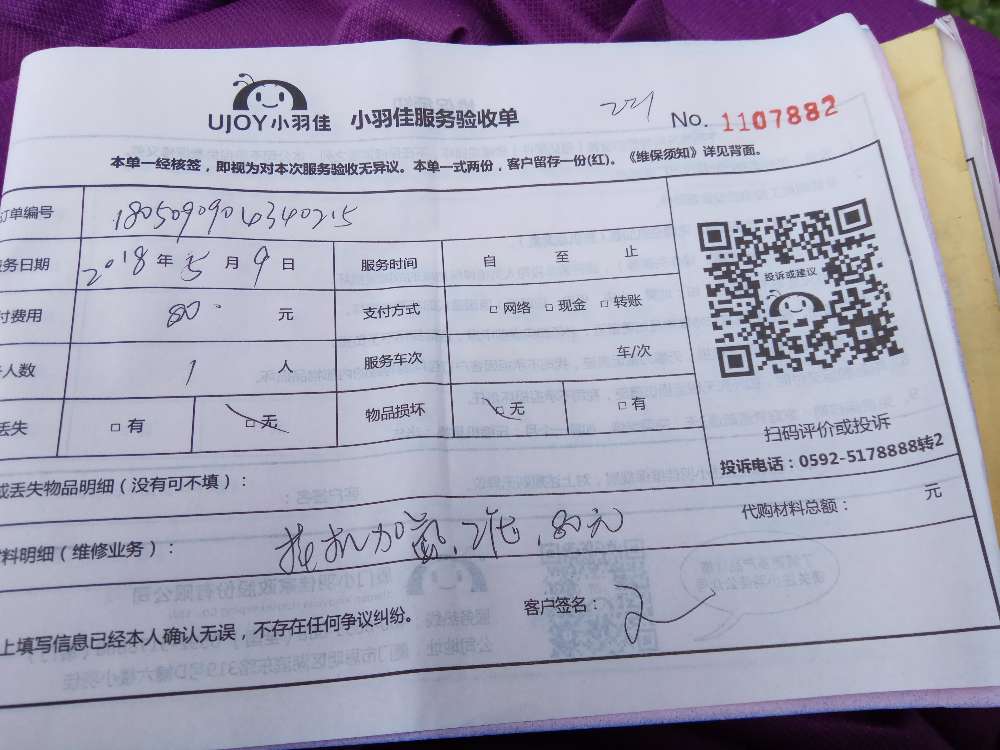 UJOY小羽佳 小羽佳服务验收单 221 No. 1107882
本单一经核签，即视为对本次服务验收无异议。本单一式两份，客户留存一份(红)。《维保须知》详见背面。
订单编号 180509094340215
务日期 2018年5月9日 服务时间 自 至 止
付费用 80 元 支付方式 □ 网络 □ 现金 □ 转账
人数 1 人 服务车次 车/次
丢失 □ 有 □ 无 物品损坏 □ 无 □ 有
投诉或建议
扫码评价或投诉
投诉电话：0592-5178888转2
或丢失物品明细（没有可不填）：
料明细（维修业务）： 挂机加氨，2台，80元
代购材料总额： 元
上填写信息已经本人确认无误，不存在任何争议纠纷。 客户签名：